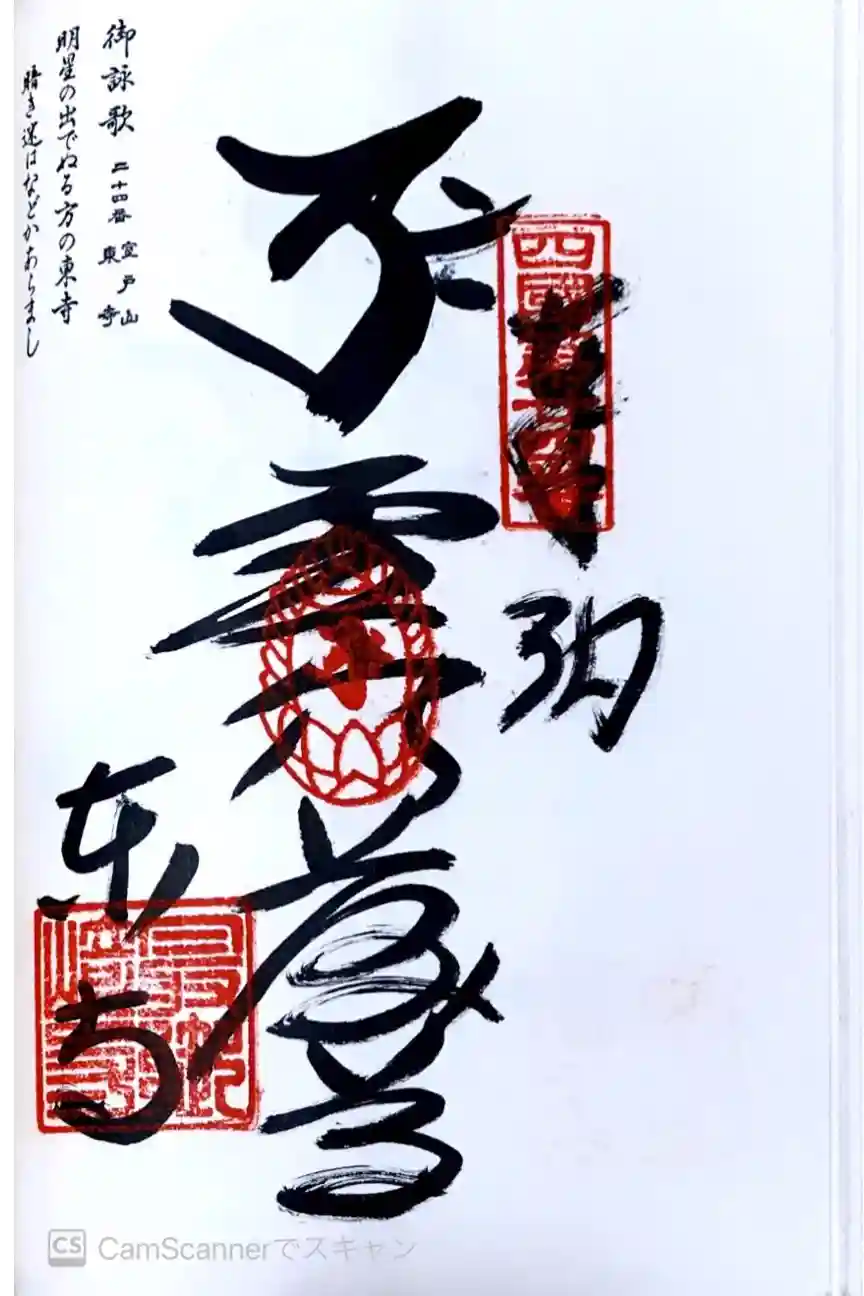 四國
奉納
虚空蔵尊
東寺
御詠歌 二十四番 室戸山
東寺
明星の出でぬる方の東寺
暗き迷はなどかあらまし
CS CamScannerでスキャン